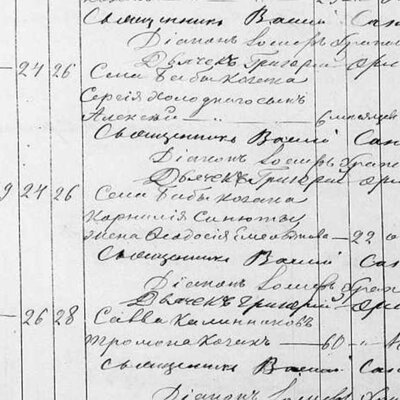 Священникъ Василій Сан
Діаконъ Іосифъ Храп
Дьячекъ Григорій Ори
24 26 Села Бабы козака
Сергія Холоднаго сынъ
Алексѣй — 6 мѣсяцев
Священникъ Василій Сан
Діаконъ Іосифъ Храп
Дьячекъ Григорій Ори
9 24 26 Села Бабы козака
Корнилія
жена Ѳеодосія — 22
Священникъ Василій Сан
Діаконъ Іосифъ Храп
Дьячекъ Григорій Ори
26 28 Савва Калинниковъ
козакъ — 60
Священникъ Василій Сан
Діаконъ Іосифъ Храп